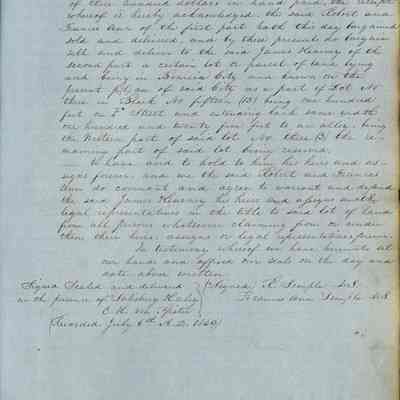 of three hundred dollars in hand paid, the receipt
whereof is hereby acknowledged the said Robert and
Frances Ann of the first part hath this day bargained
sold and delivered, and by these presents do bargain
sell and deliver to the said James Kearney of the
second part a certain lot or parcel of land lying
and being in Benicia City and known on the
present plan of said City as a part of Lot No
three in Block No fifteen (15) being one hundred
feet on F Street and extending back same width
one hundred and twenty five feet to an alley, being
the Western part of said lot No three (3) the re-
maining part of said lot being reserved.
To have and to hold to him his heirs and as-
signs forever, and we the said Robert and Frances
Ann do covenant and agree to warrant and defend
the said James Kearney his heirs and assigns and
legal representatives in the title to said lot of land
from all persons whatsoever claiming from or under
them their heirs, assigns or legal representatives forever.
In testimony whereof we have hereunto set
our hands and affixed our seals on the day and
date above written
Signed Sealed and delivered (Signed) R. Semple
in the presence of Frances Ann Semple
C. H. von
Recorded July 6th A.D. 1849